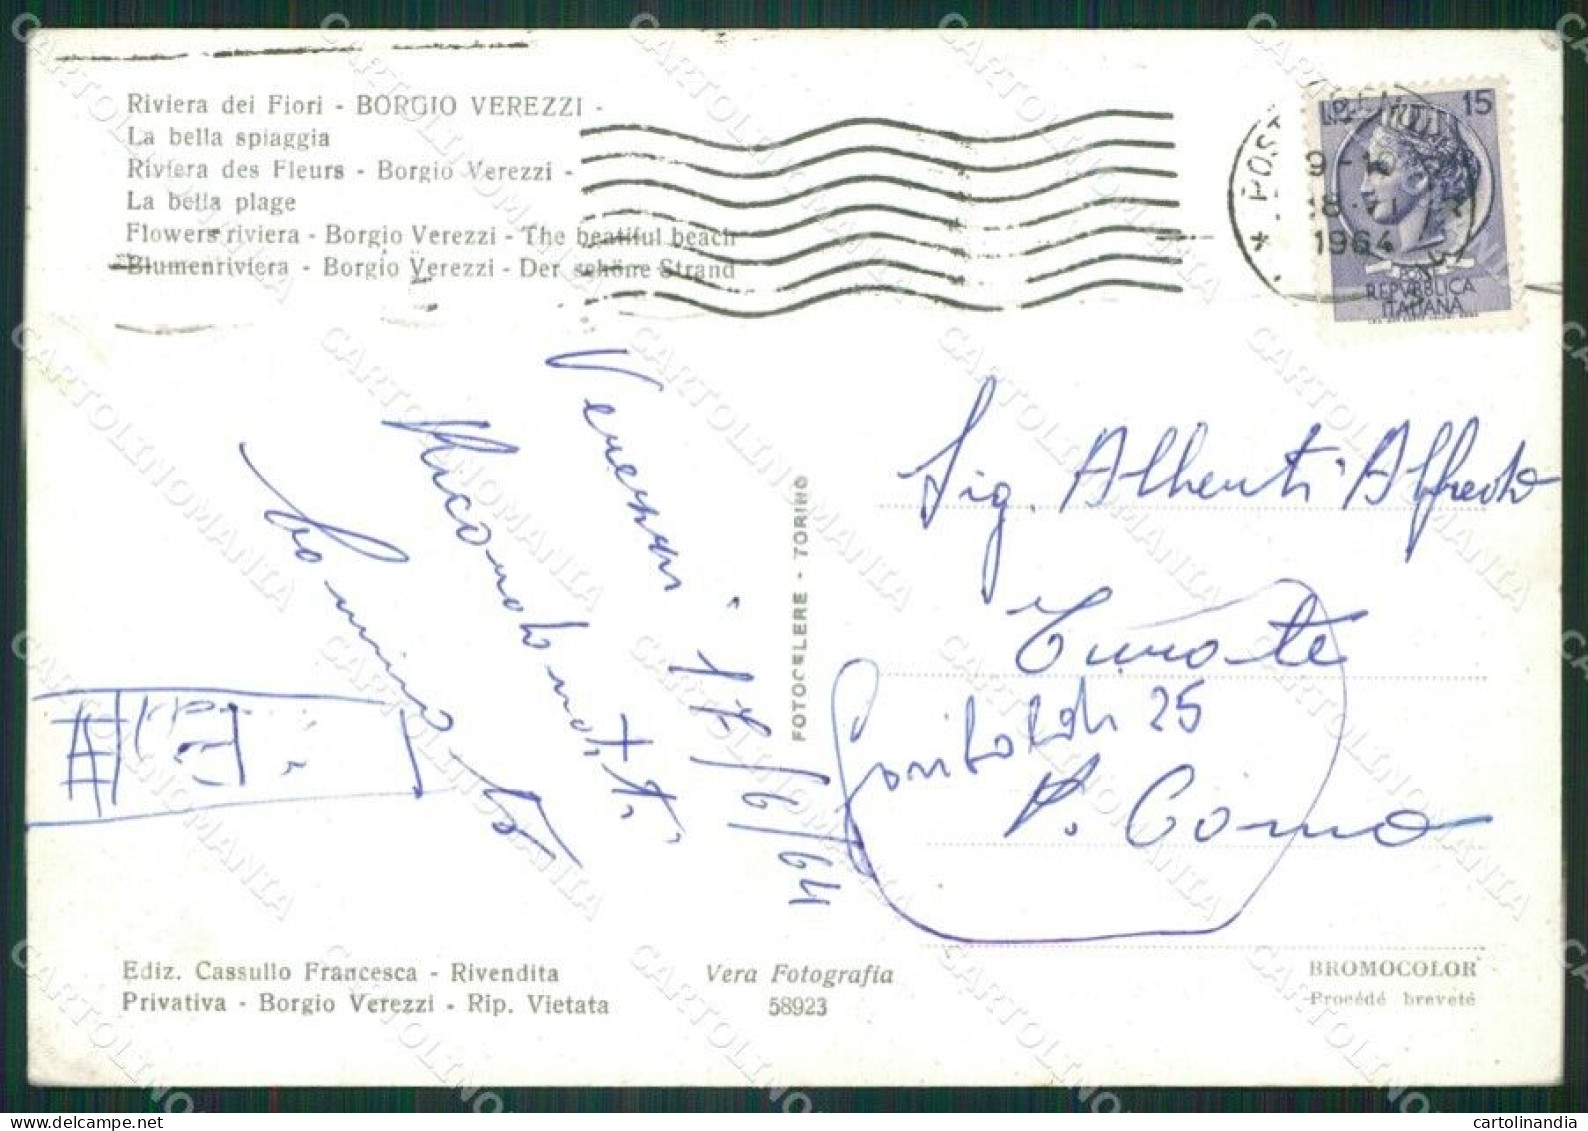 Riviera dei Fiori - BORGIO VEREZZI -
La bella spiaggia
Riviera des Fleurs - Borgio Verezzi -
La bella plage
Flowers riviera - Borgio Verezzi - The beatiful beach
Blumenriviera - Borgio Verezzi - Der schöne Strand
9-10
1964
15
REPVBBLICA
ITALIANA
Verezzi 17/6/64
Sig. Alberti Alfredo
Turate
Garibaldi 25
P. Como
FOTOCELERE - TORINO
Ediz. Cassullo Francesca - Rivendita
Privativa - Borgio Verezzi - Rip. Vietata
Vera Fotografia
58923
BROMOCOLOR
Procédé breveté
CARTOLINOMANIA
cartolinandia